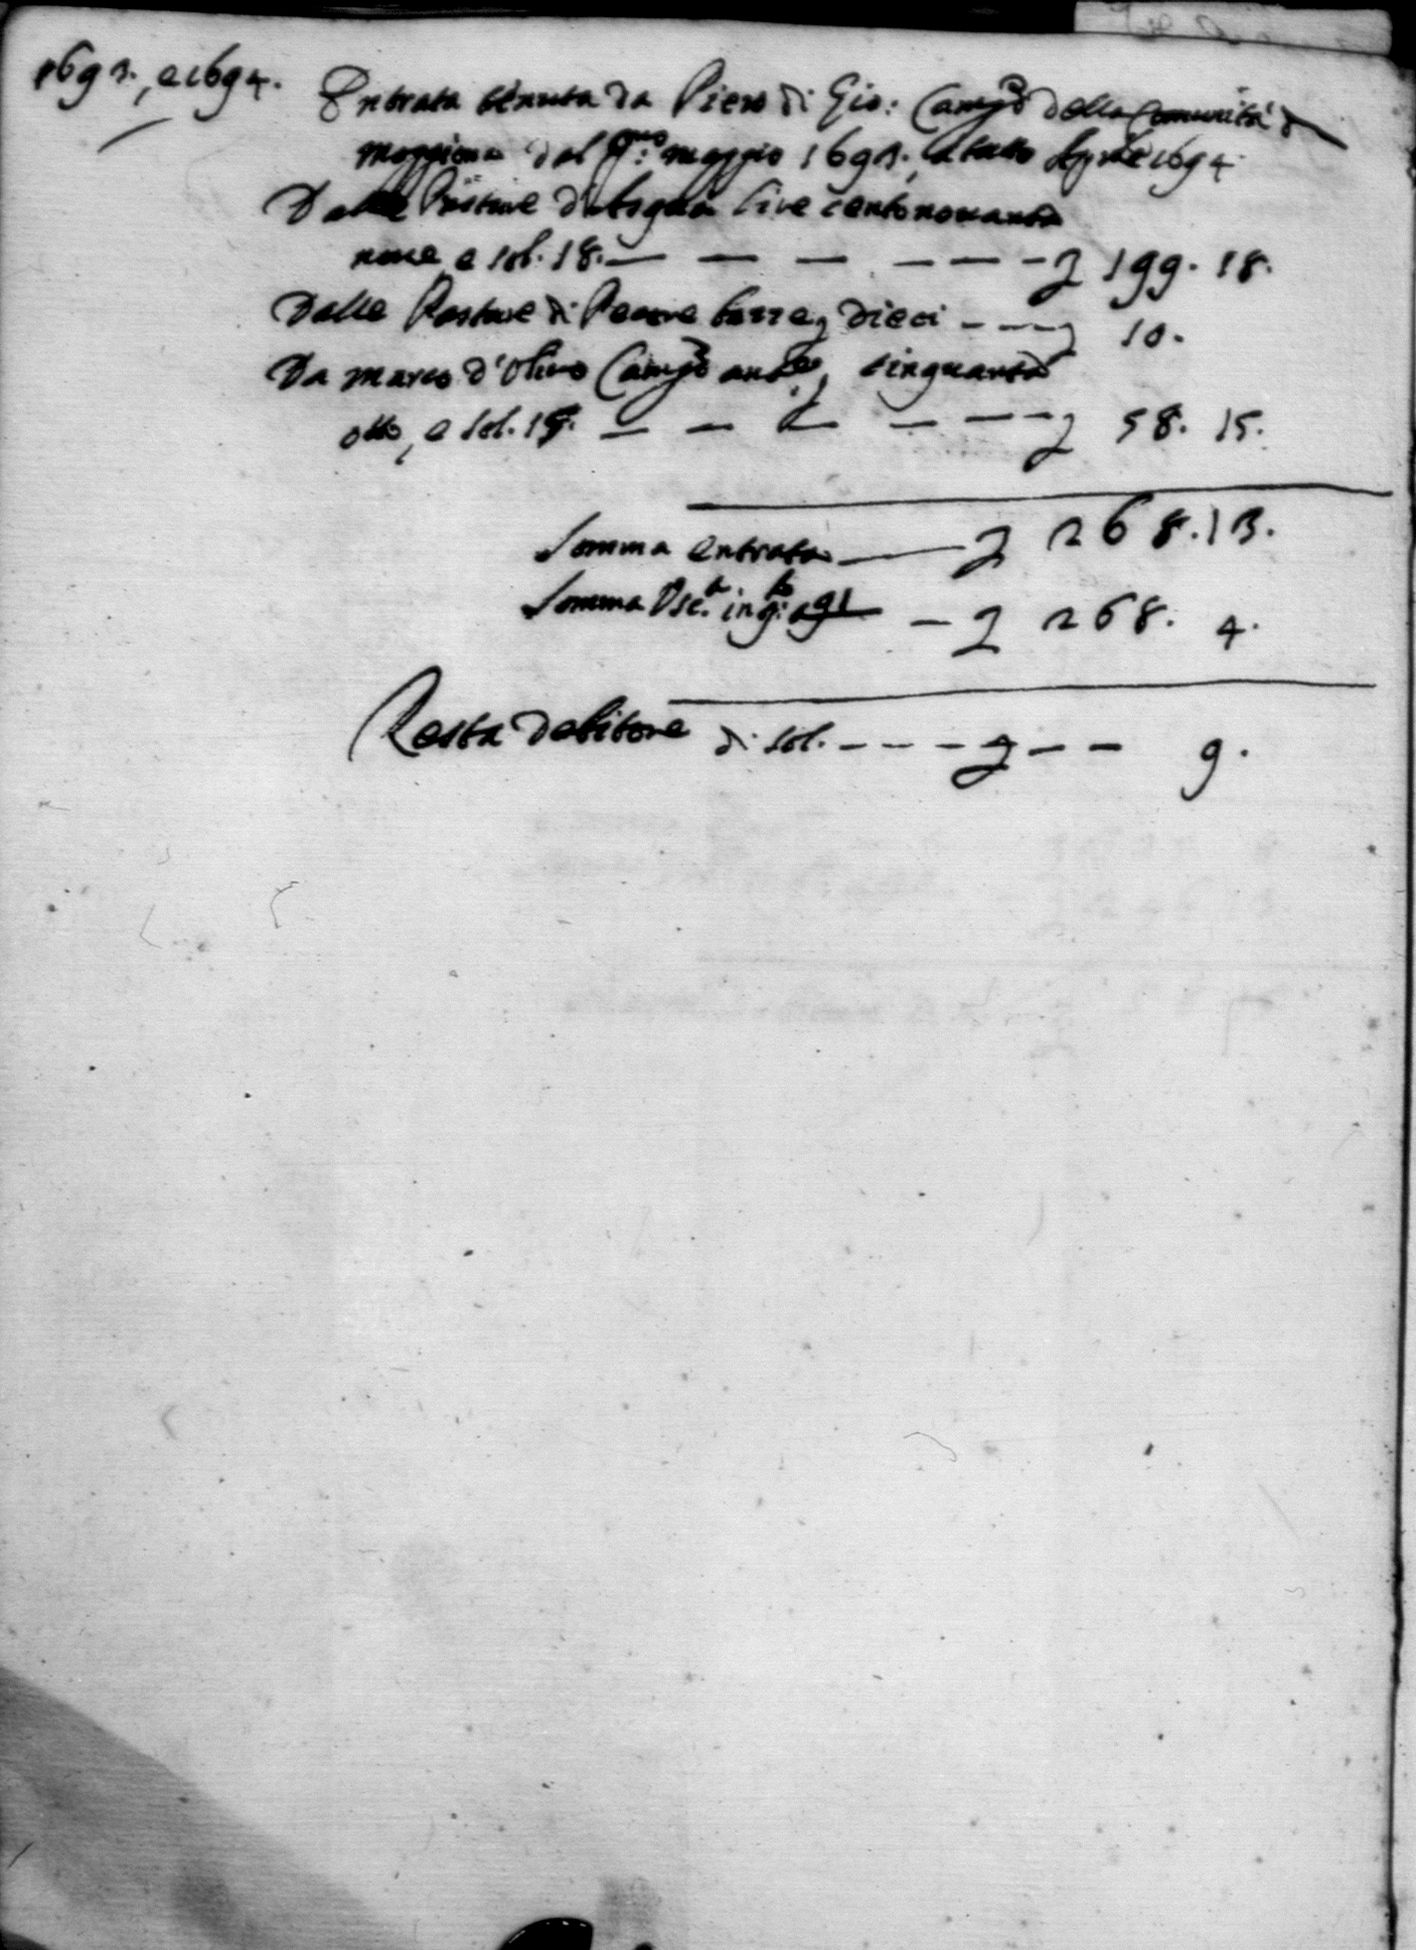 1693., e 1694.
Entrata tenuta da Piero di Gio: Camgo della Comunità di
Moggiona dal pmo: maggio 1693., a tutto Aprile 1694.
Dalle Pasture di lire cento novanta
nove e sol. 18. — — — — — — £ 199. 18.
Dalle Pasture di Pecore £ dieci - - - £ 10.
Da Marco d'Olivo Camgo antece, cinquanta
otto, e sol. 15. — — — — — — £ 58. 15.
Somma entrata — £ 268. 13.
Somma Usc.ta in — £ 268. 4.
Resta debitore di sol. - - - - £ - - 9.